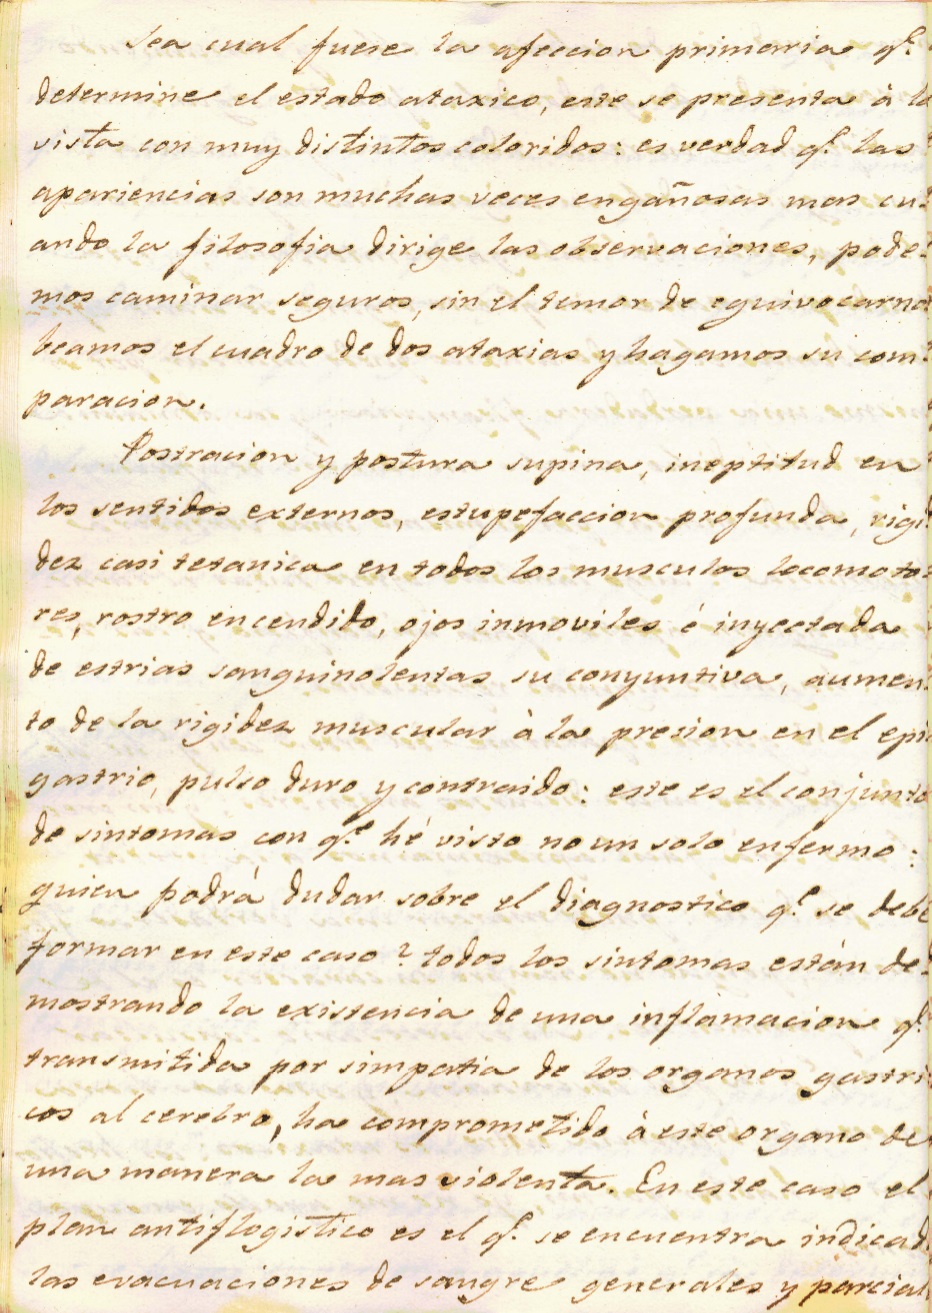 Sea cual fuese la afeccion primaria q.e
determine el estado ataxico, este se presenta à la
vista con muy distintos coloridos: es verdad q.e las
apariencias son muchas veces engañosas mas cu-
ando la filosofia dirige las observaciones, pode-
mos caminar seguros, sin el temor de equivocarno
beamos el cuadro de dos ataxias y hagamos su com-
paracion.
Postracion y postura supina, ineptitud en
los sentidos externos, estupefaccion profunda, rigi-
dez casi tetanica en todos los musculos locomoto-
res, rostro encendido, ojos inmoviles é inyectada
de estrias sanguinolentas su conyuntiva, aumen-
to de la rigidez muscular à la presion en el epi-
gastrio, pulso duro y contraido: este es el conjunto
de sintomas con q.e hé visto no un solo enfermo:
quien podrá dudar sobre el diagnostico q.e se debe
formar en este caso? todos los sintomas están de-
mostrando la existencia de una inflamacion q.e
transmitida por simpatia de los organos gastri-
cos al cerebro, ha comprometido à este organo de
una manera la mas violenta. En este caso el
plan antiflogistico es el q.e se encuentra indicad
las evacuaciones de sangre generales y parcial